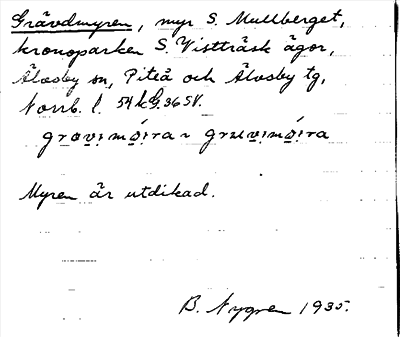 Grävdmyren, myr S. Mullberget,
kronoparken S. Vistträsk ägor,
Älvsby sn, Piteå och Älvsby tg,
Norrb. l. 54kG.36SV.
Myren är utdikad.
B. Nygren 1935.